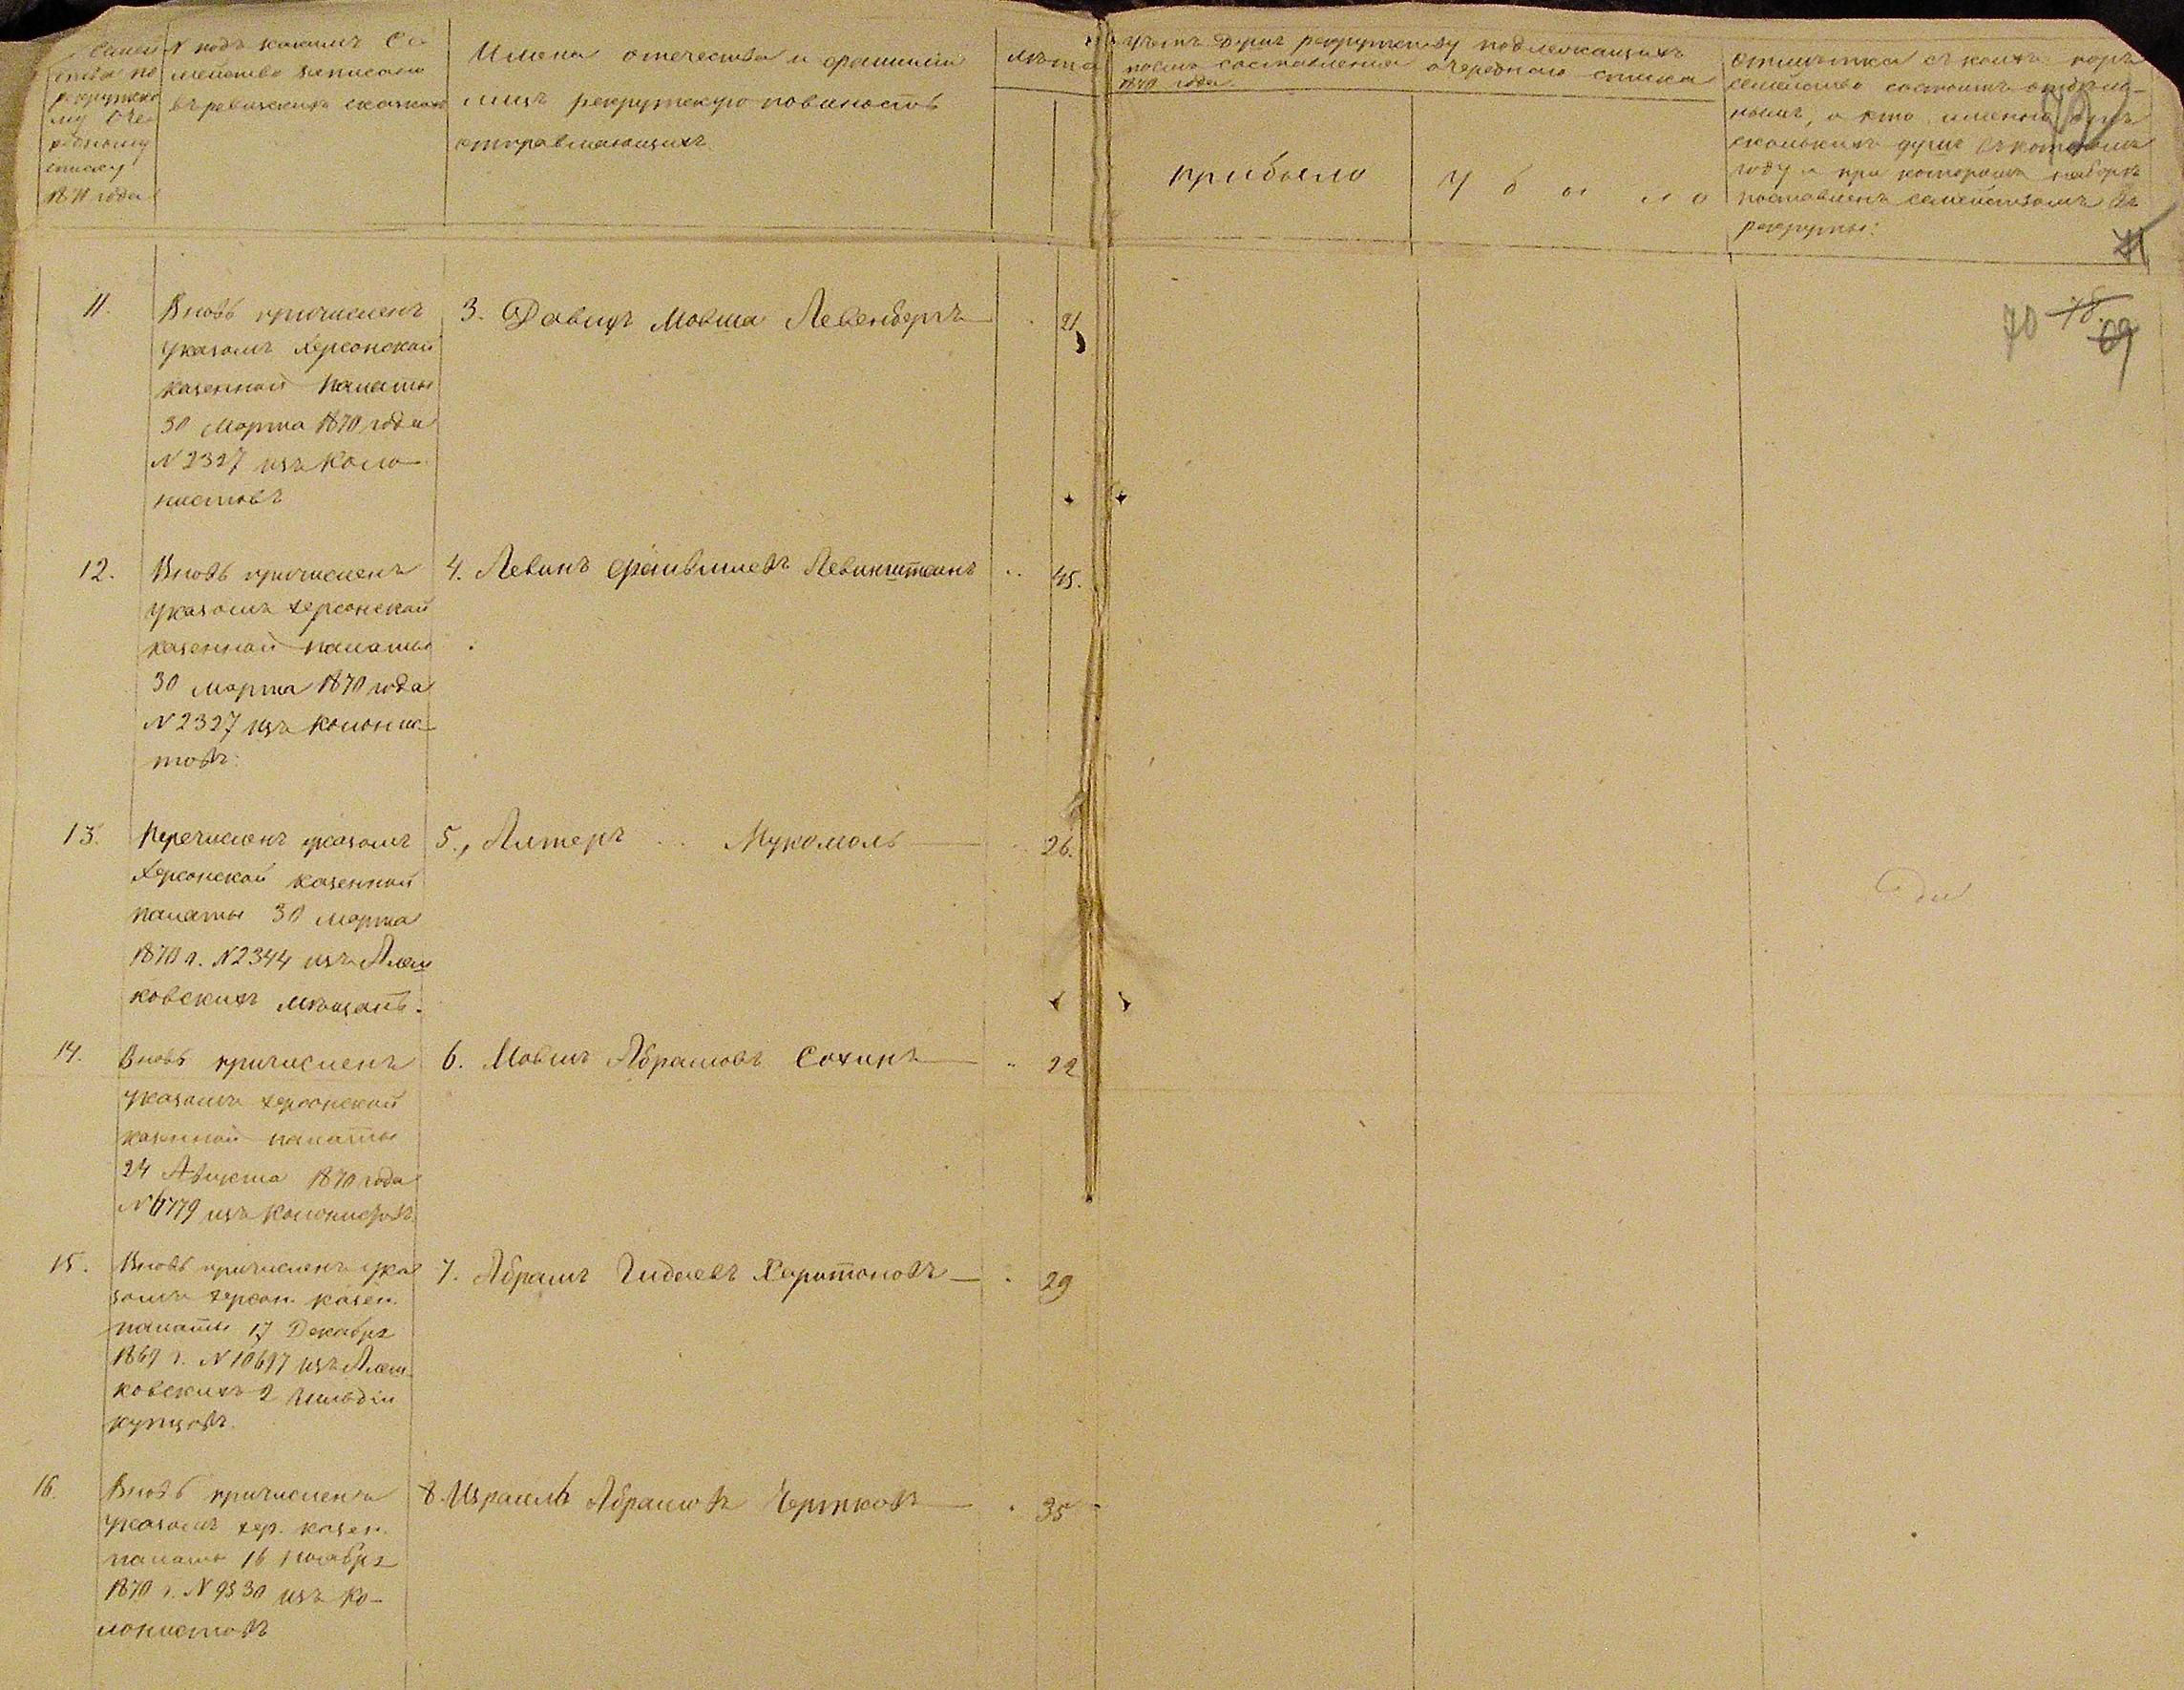 Семей
ства по
рекрутско
му Оче
редному
списку
1870 года
N подъ какимъ Се
мейство записано
въ ревизскихъ сказкахъ
Имена отечества и фамиліи
лицъ рекрутскую повиность
отправляющихъ
лѣта
душъ рекрутству подлежащихъ
послѣ составленія очереднаго списка
1870 года.
прибыло
Убыло
Отмѣтка съ коихъ поръ
семейство состоитъ
нымъ, и кто именно
сколькихъ душъ въ которомъ
году и при которомъ наборѣ
поставленъ семействомъ въ
рекруты:
71
70 69
11.
Вновь причисленъ
указомъ Херсонской
казенной палаты
30 Марта 1870 года
N 2327 изъ Коло
нистовъ
3. Давидъ Мовша Левенбергъ
21
12.
Вновь причисленъ
указомъ Херсонской
казенной палаты
30 Марта 1870 года
N 2327 изъ Колонис
товъ.
4. Левинъ Левинштеинъ
45.
13.
Перечисленъ указомъ
Херсонской казенной
палаты 30 Марта
1870 г. N 2344 изъ Алеш
ковскихъ мѣщанъ.
5., Алтеръ Мукомоль
26.
14.
Вновь причисленъ
указомъ Херсонской
казенной палаты
24 Августа 1870 года
N 6779 изъ Колонистовъ
6. Мовшъ Абрамовъ Сохинъ
22
15.
Вновь причисленъ ука
зомъ Херсон. казен.
палаты 17 Декабря
1869 г. N 10697 изъ Алеш
ковскихъ 2 Гильдіи
купцовъ.
7. Абрамъ Гидаевъ Харитоновъ
29
16.
Вновь причисленъ
указомъ Хер. казен.
палаты 16 Ноября
1870 г. N 9530 изъ Ко-
лонистовъ
8. Израиль Абрамовъ Чертковъ
35